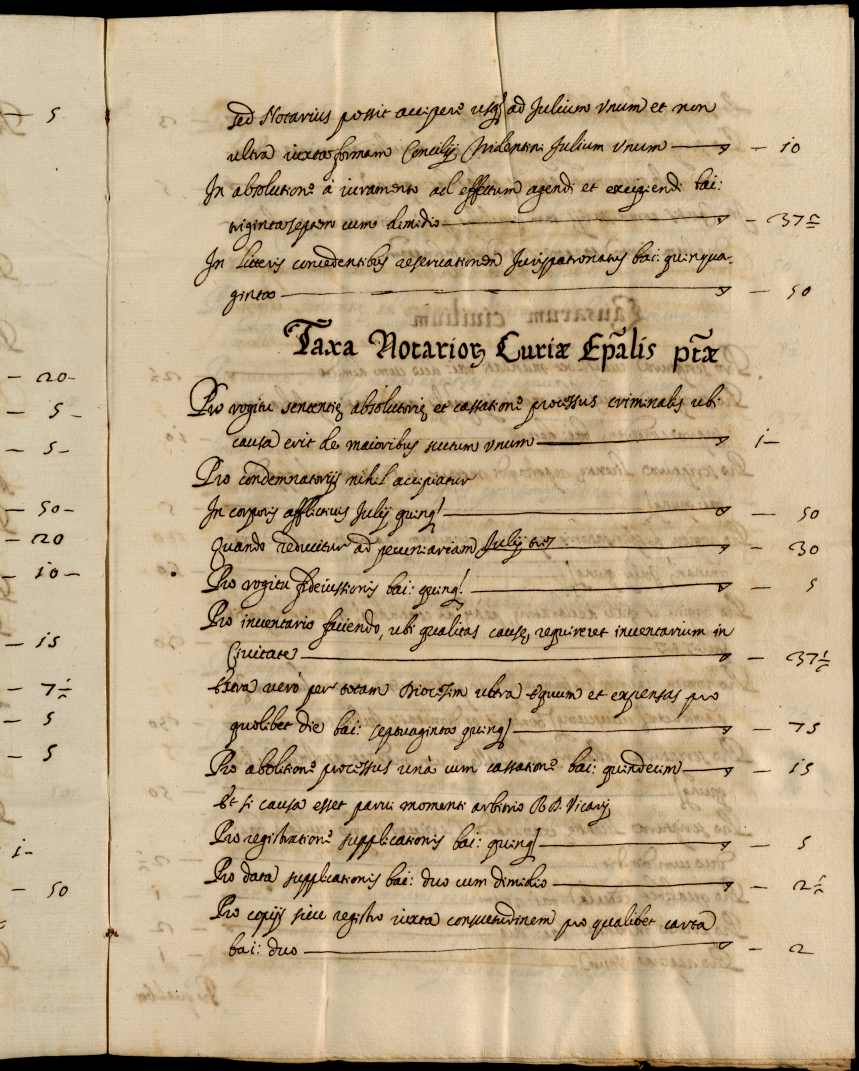 5
sed Notarius possit accipere usq ad Julium vnum et non
ultra iuxta formam Concilij Tridentini Julium vnum — 10
In absolutione à iuramento ad effectum agendi et excipiendi bai:
triginta septem cum dimidio — 37½
In litteris concedentibus reservationem Jurispatronatus bai: quinqua-
ginta — 50
Taxa Notarior Curiæ Ep̃alis pt̃æ
Pro rogitu sententię absolutorię et cassatione processus criminalis ubi
causa erit de maioribus scutum vnum — 1-
Pro condemnatorijs nihil accipiatur
In corporis afflictivis Julij quinq — 50
Quando reducitur ad pecuniariam Julij tres — 30
Pro rogitu fideiussionis bai: quinq — 5
Pro inventario faciendo, ubi qualitas causę requireret inventarium in
Civitate — 37½
Extra verò per totam Diocesim ultra equum et expensas pro
quolibet die bai: septuaginta quinq — 75
Pro abolitione processus unà cum cassatione bai: quindecim — 15
Et si causa esset parvi momenti arbitrio R.D. Vicarij
Pro registratione supplicationis bai: quinq — 5
Pro data supplicationis bai: duo cum dimidio — 2½
Pro copijs sive registro iuxta consuetudinem pro qualibet carta
bai: duo — 2
20-
5-
5-
50-
20
10-
15
7½
5
5
1-
50